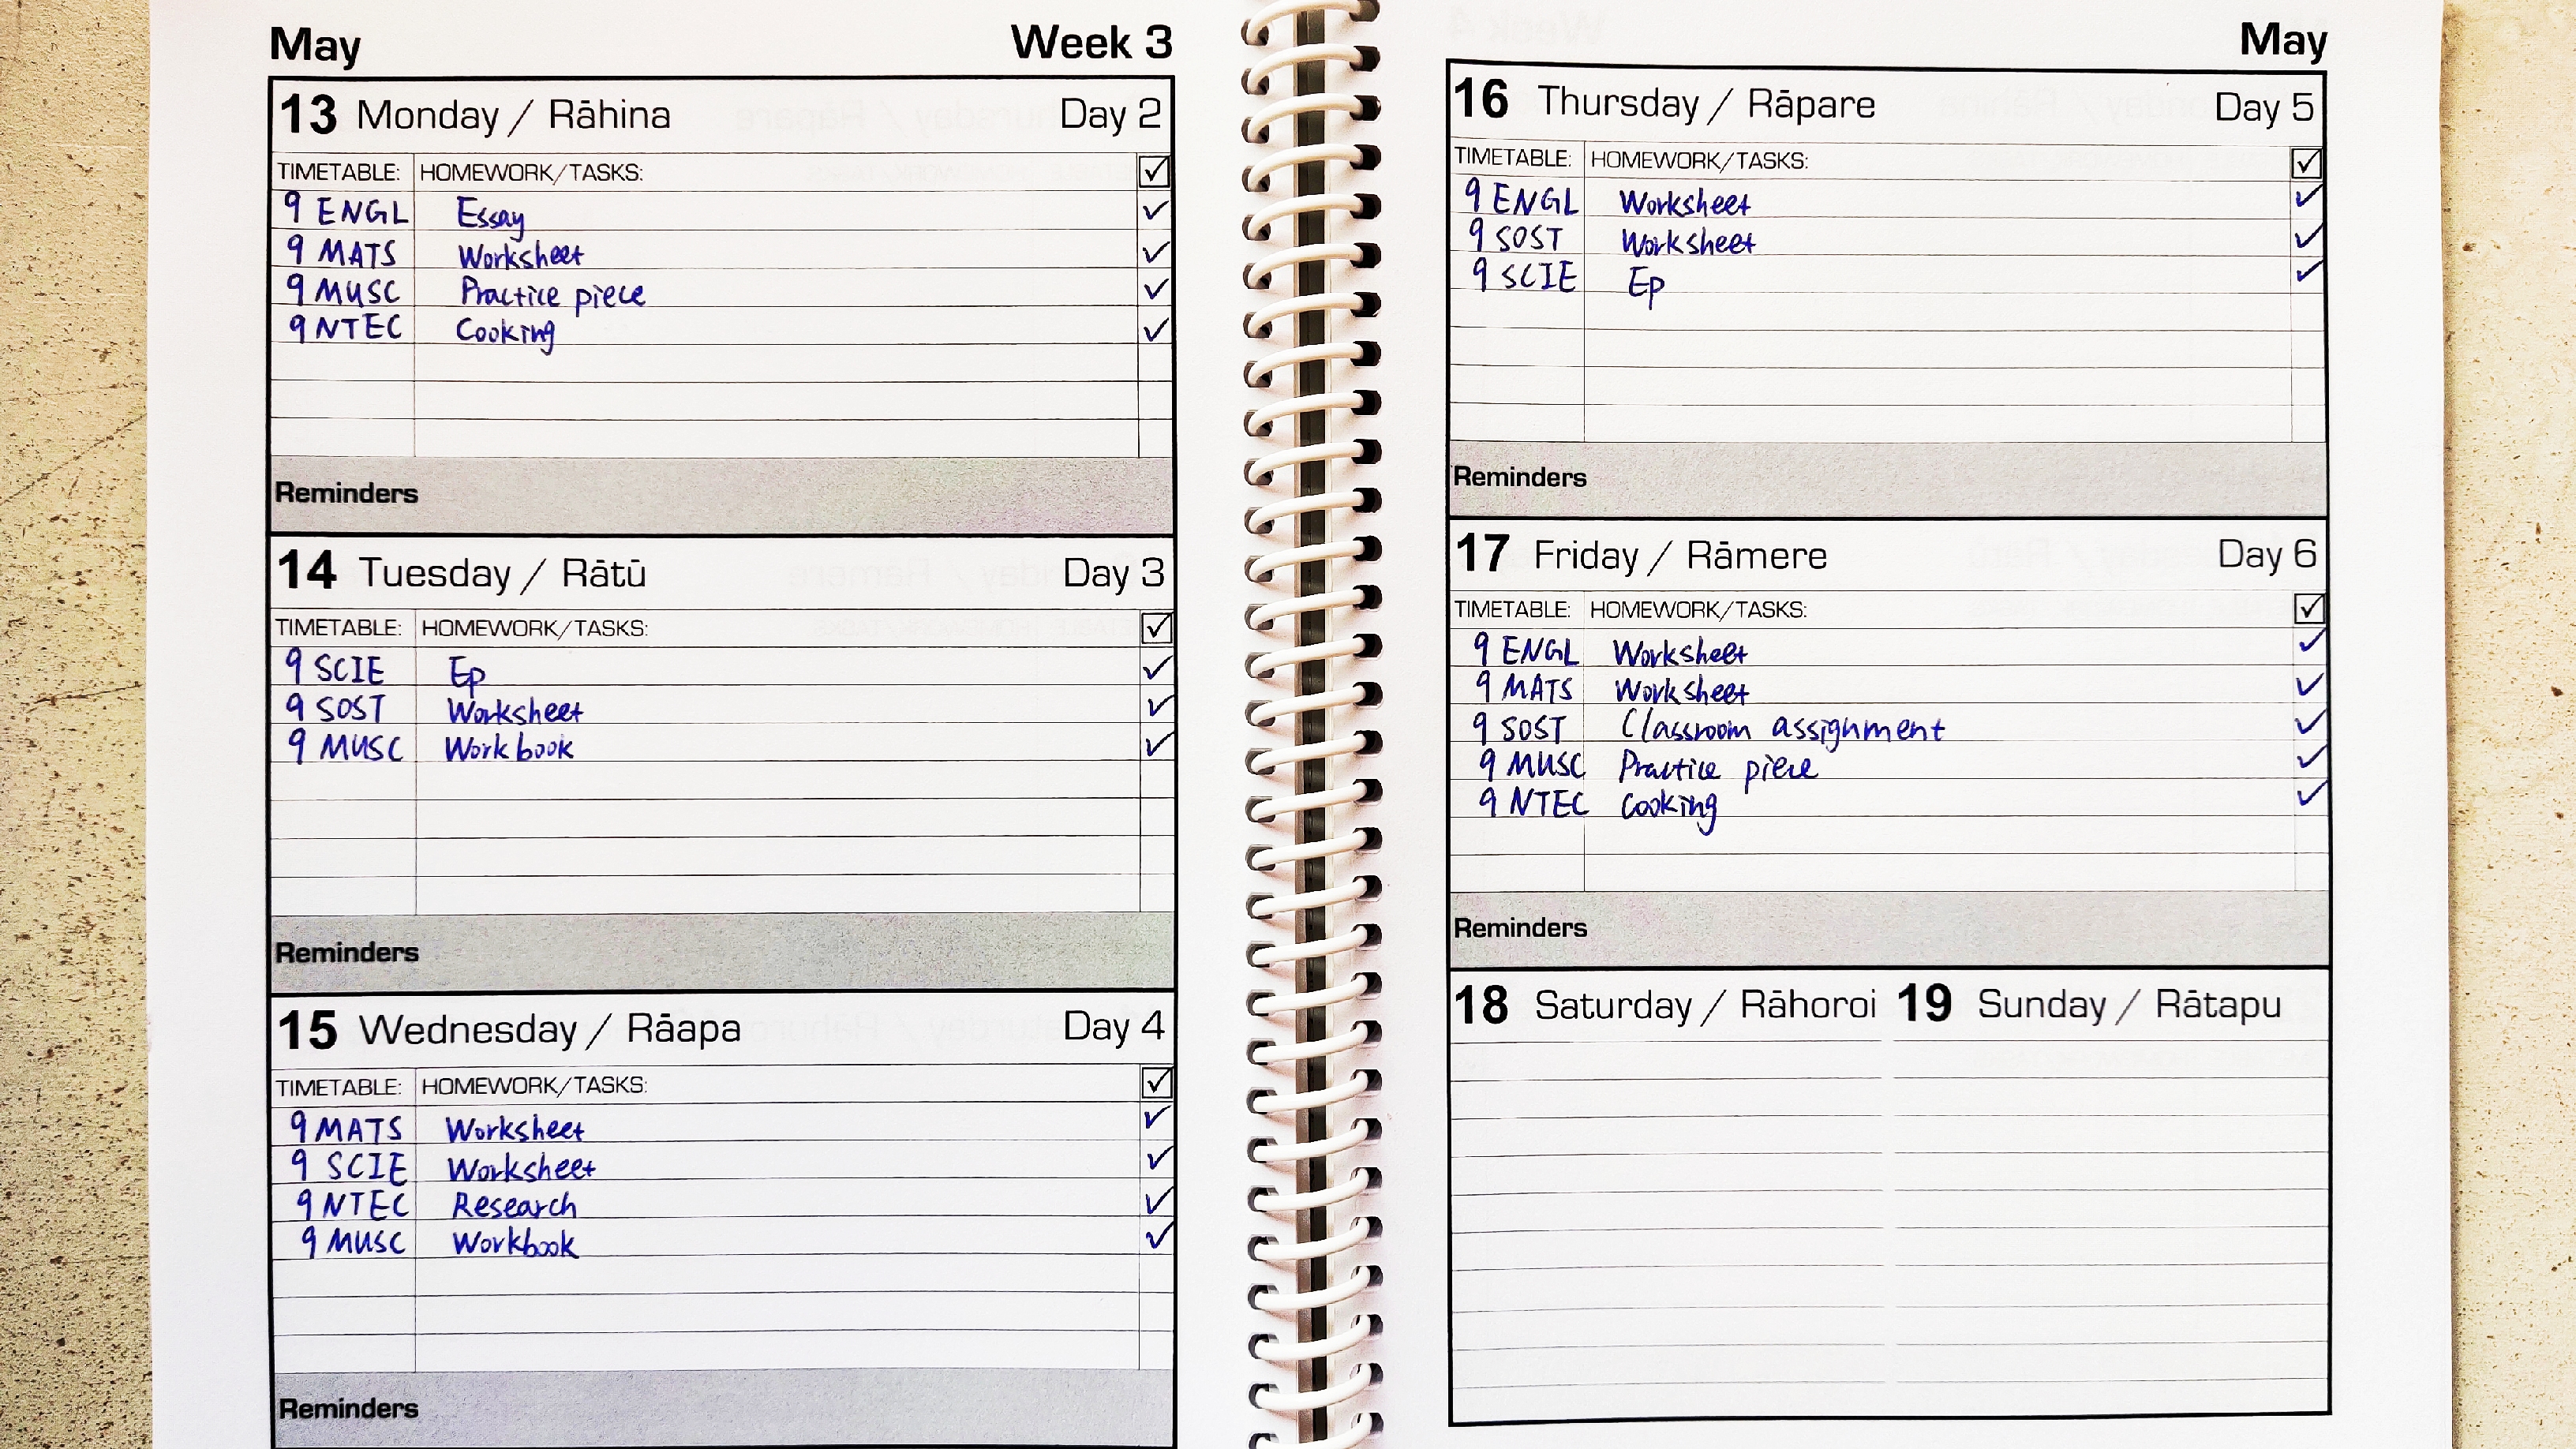 May Week 3
13 Monday / Rāhina Day 2
TIMETABLE: HOMEWORK/TASKS:
9 ENGL Essay
9 MATS Worksheet
9 MUSC Practice piece
9 NTEC Cooking
Reminders
14 Tuesday / Rātū Day 3
TIMETABLE: HOMEWORK/TASKS:
9 SCIE Ep
9 SOST Worksheet
9 MUSC Workbook
Reminders
15 Wednesday / Rāapa Day 4
TIMETABLE: HOMEWORK/TASKS:
9 MATS Worksheet
9 SCIE Worksheet
9 NTEC Research
9 MUSC Workbook
Reminders
May
16 Thursday / Rāpare Day 5
TIMETABLE: HOMEWORK/TASKS:
9 ENGL Worksheet
9 SOST Worksheet
9 SCIE Ep
Reminders
17 Friday / Rāmere Day 6
TIMETABLE: HOMEWORK/TASKS:
9 ENGL Worksheet
9 MATS Worksheet
9 SOST Classroom assignment
9 MUSC Practice piece
9 NTEC Cooking
Reminders
18 Saturday / Rāhoroi 19 Sunday / Rātapu